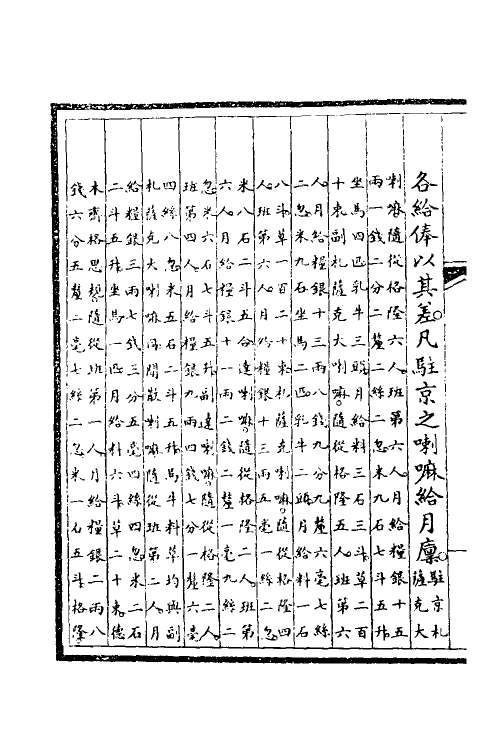 各給俸以其差凡駐京之喇嘛給月廩駐京札
薩克大
喇嘛隨從格隆六人班第六人月給糧銀十五
兩一錢二分二釐二絲二忽米九石七斗五升
坐馬四匹乳牛三頭月給料三石三斗草二百
十束副札薩克大喇嘛隨從格隆五人班第六
人月給糧銀十三兩八錢九分九釐六毫七絲
二忽米九石坐馬二匹乳牛二頭月給料一石
八斗草一百二十束札薩克喇嘛隨從格隆四
人班第六人月給糧銀十三兩五毫一絲二忽
米八石二斗五升達喇嘛隨從格隆二人班第
六人月給糧銀十一兩二錢二釐一毫九絲二
忽米六石七斗五升副達喇嘛隨從格隆二人
班第四人月給糧銀九兩四錢七分一釐六毫
四絲八忽米五石二斗五升馬牛料草均與副
札薩克大喇嘛同閒散喇嘛隨從班第二人月
給糧銀三兩七錢三分五釐四絲四忽米二石
二斗五升坐馬一匹月給料六斗草二十束德
木齊格思規隨從班第一人月給糧銀二兩八
錢六分五釐二毫七絲二忽米一石五斗格隆